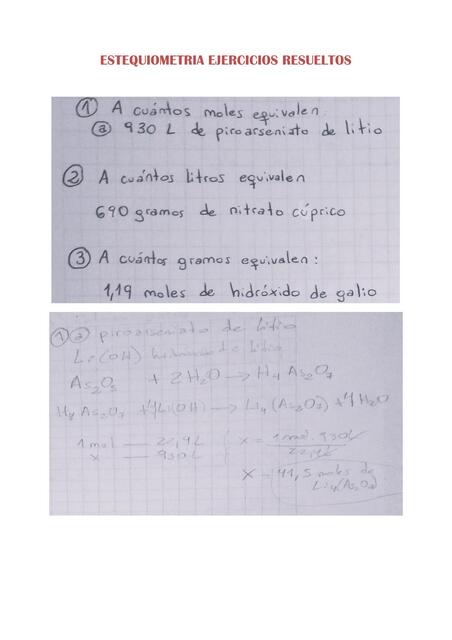 ESTEQUIOMETRIA EJERCICIOS RESUELTOS
① A cuántos moles equivalen
ⓐ 930 L de piroarseniato de litio
② A cuántos litros equivalen
690 gramos de nitrato cúprico
③ A cuántos gramos equivalen:
1,19 moles de hidróxido de galio
① ⓐ piroarseniato de litio
Li(OH) hidróxido de litio
As₂O₅ + 2H₂O → H₄As₂O₇
H₄As₂O₇ + 4Li(OH) → Li₄(As₂O₇) + 4H₂O
1 mol — 22,4L
x — 930L
x = 1mol. 930L
22,4L
x = 41,5 moles de
Li₄(As₂O₇)